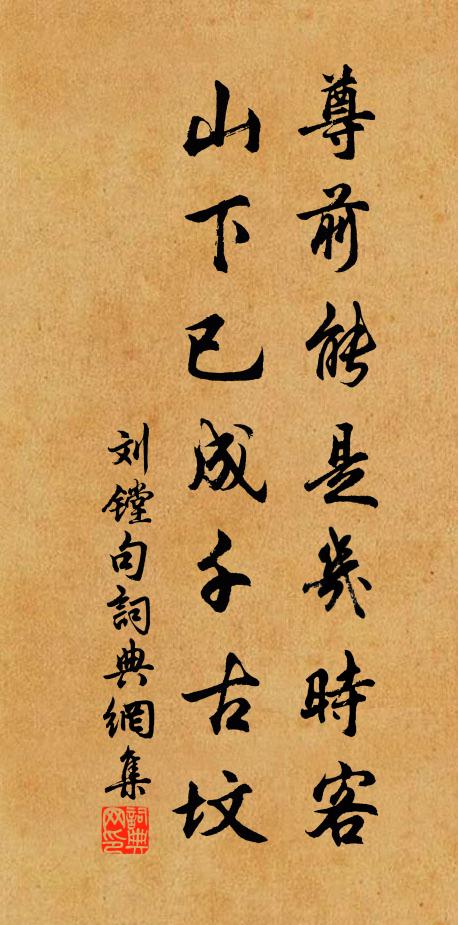 尊前能是幾時客
山下已成千古坟
刘鏜句詞典網集
詞典網印